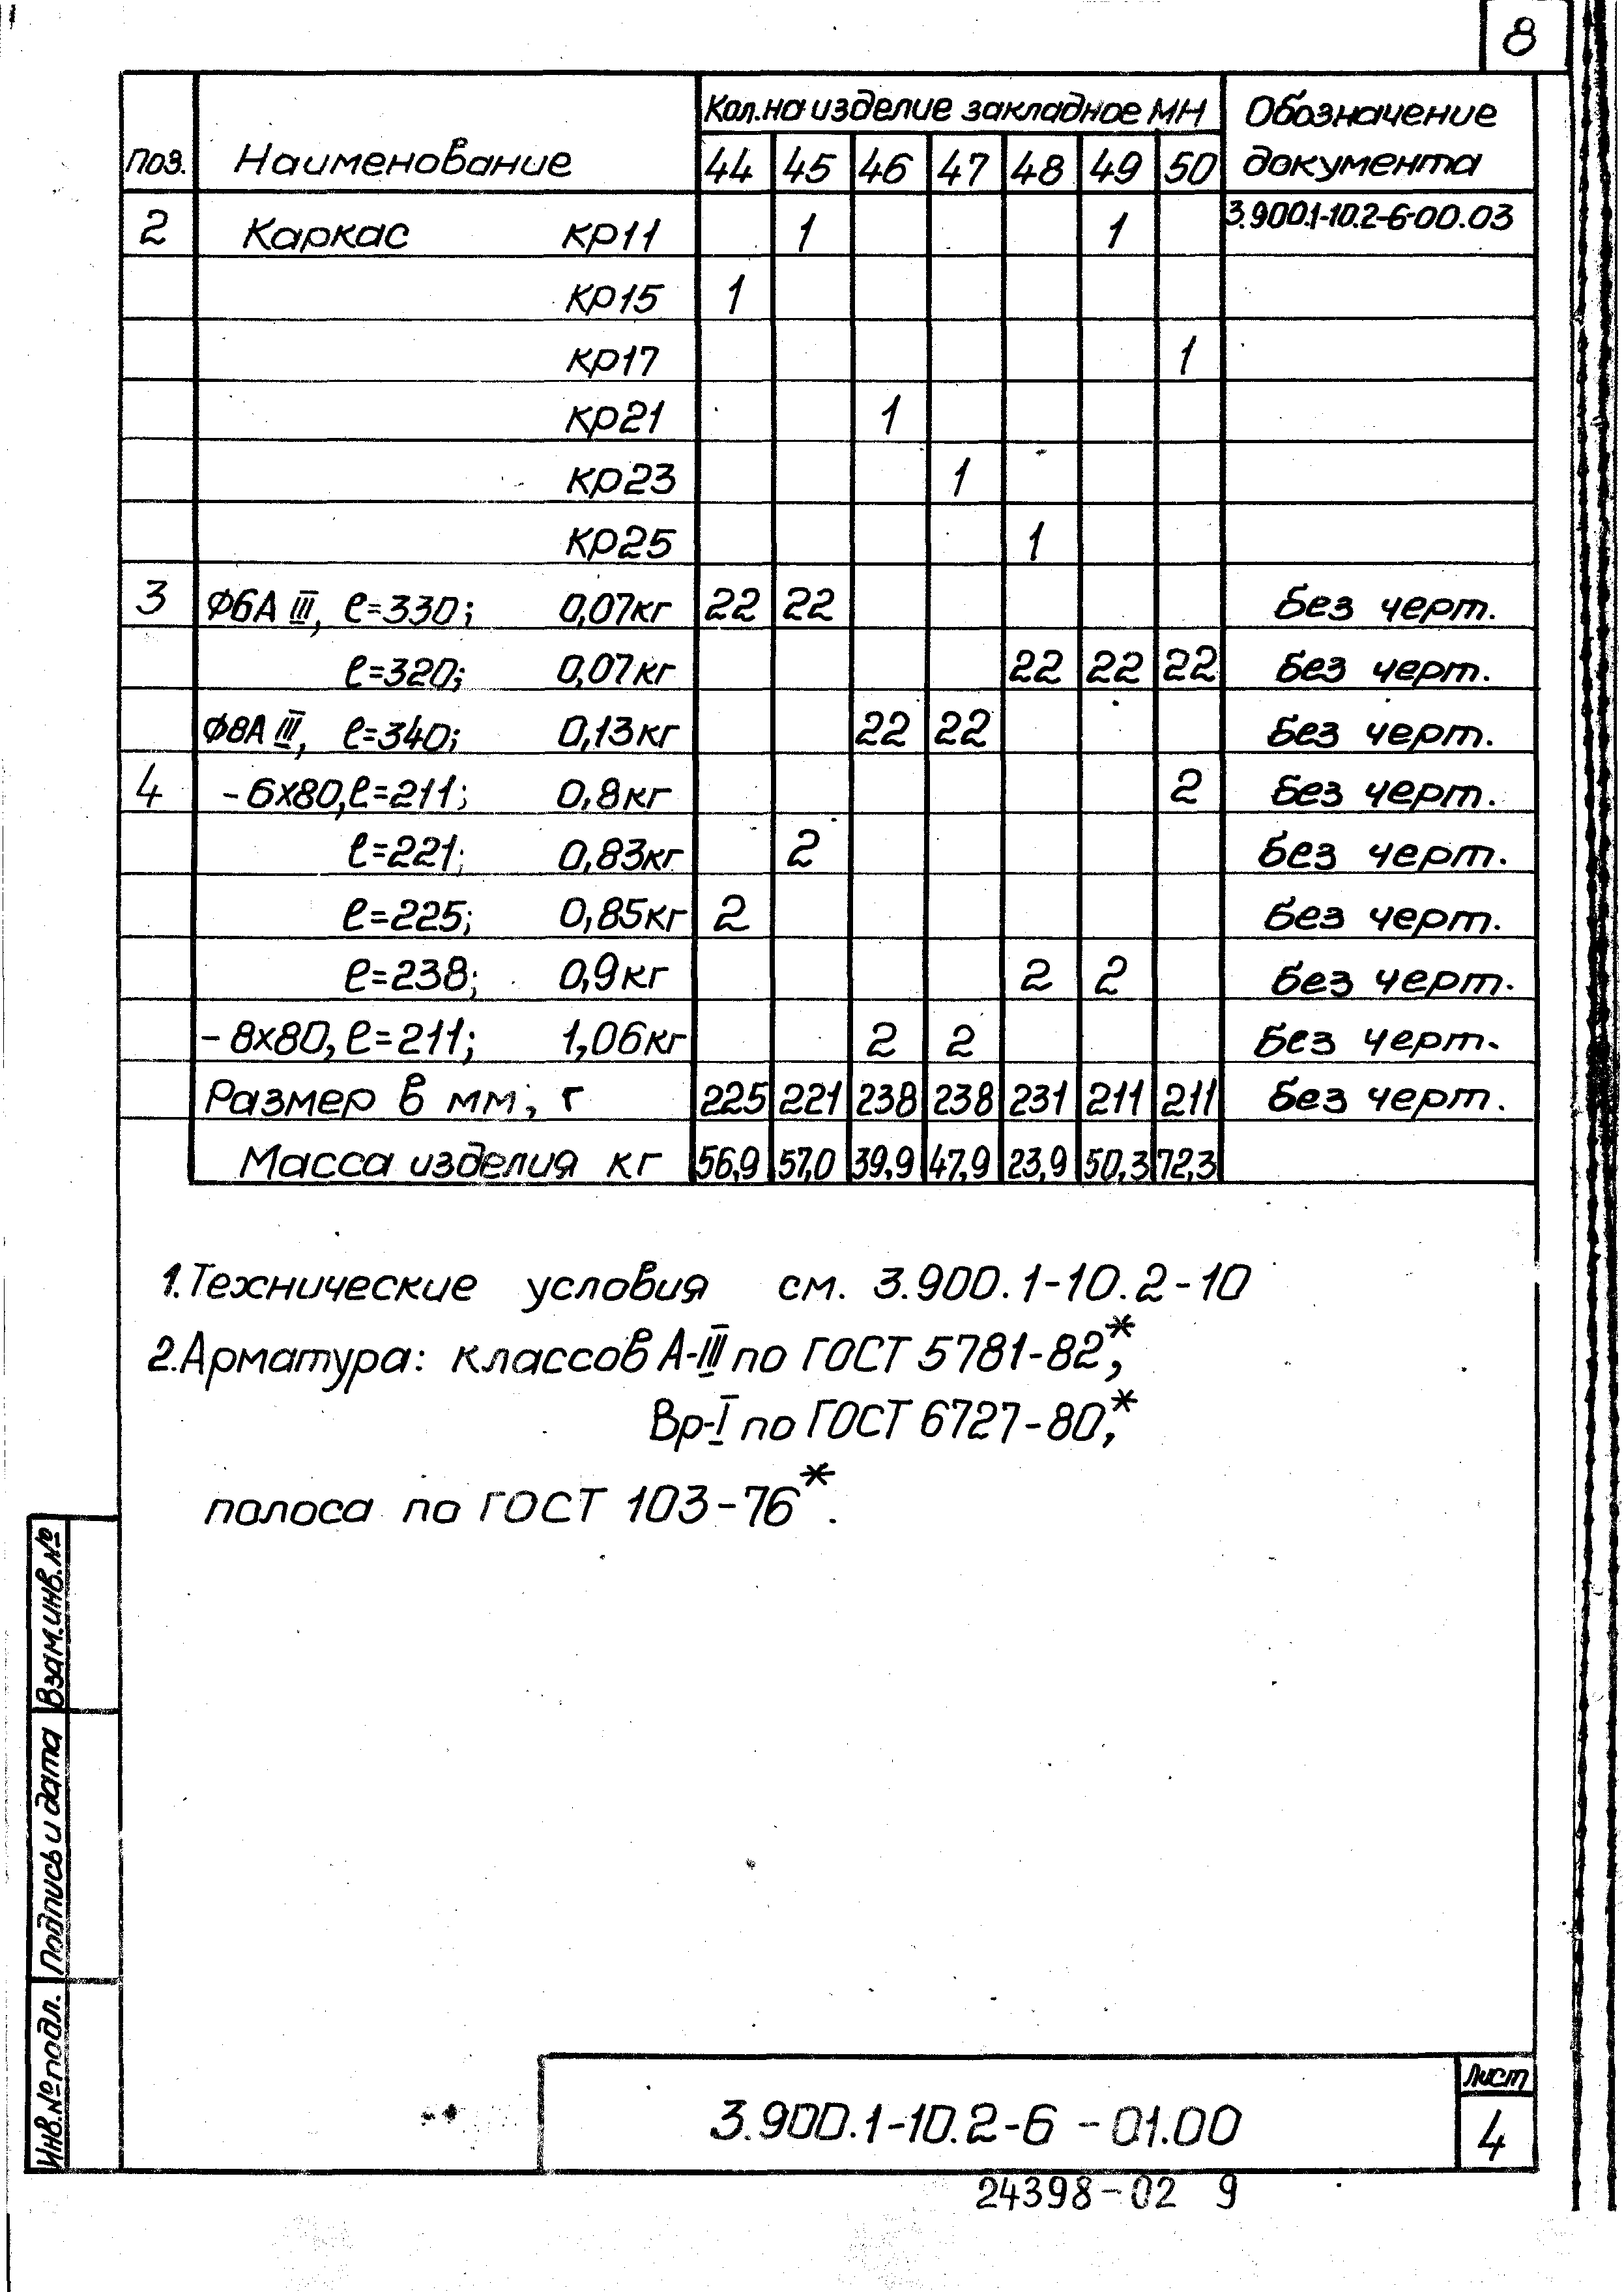 8
Поз. Наименование Кол. на изделие закладное МН Обозначение документа
44 45 46 47 48 49 50
2 Каркас КР11 1 1 3.900.1-10.2-6-00.03
КР15 1
КР17 1
КР21 1
КР23 1
КР25 1
3 Ф6А III, ℓ=330; 0,07кг 22 22 Без черт.
ℓ=320; 0,07кг 22 22 22 Без черт.
Ф8А III, ℓ=340; 0,13кг 22 22 Без черт.
4 -6х80, ℓ=211; 0,8кг 2 Без черт.
ℓ=221; 0,83кг 2 Без черт.
ℓ=225; 0,85кг 2 Без черт.
ℓ=238; 0,9кг 2 2 Без черт.
-8х80, ℓ=211; 1,06кг 2 2 Без черт.
Размер в мм; г 225 221 238 238 231 211 211 Без черт.
Масса изделия кг 56,9 57,0 39,9 47,9 23,9 50,3 72,3
1. Технические условия см. 3.900.1-10.2-10
2. Арматура: классов А-III по ГОСТ 5781-82*,
Вр-I по ГОСТ 6727-80*,
полоса по ГОСТ 103-76*.
Взам. инв. №
Подпись и дата
Инв. № подл.
3.900.1-10.2-6-01.00
Лист
4
24398-02 9